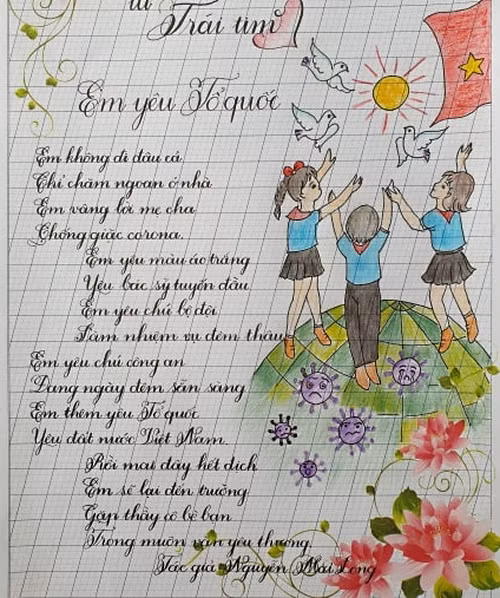 từ
Trái tim
Em yêu Tổ quốc
Em không đi đâu cả
Chỉ chăm ngoan ở nhà
Em vâng lời mẹ cha
Chống giặc corona.
Em yêu màu áo trắng
Yêu bác sỹ tuyến đầu
Em yêu chú bộ đội
Làm nhiệm vụ đêm thâu
Em yêu chú công an
Đang ngày đêm sẵn sàng
Em thêm yêu Tổ quốc
Yêu đất nước Việt Nam.
Rồi mai đây hết dịch
Em sẽ lại đến trường
Gặp thầy cô bè bạn
Trong muôn vàn yêu thương.
Tác giả Nguyễn Mai Long